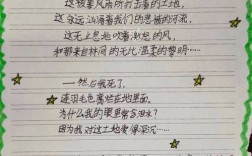 这被暴风雨所打击着的土地，
这永远汹涌着我们的悲愤的河流，
这无止息地吹着激怒的风，
和那来自林间的无比温柔的黎明……
——然后我死了，
连羽毛也腐烂在地里面。
为什么我的眼里常含泪水？
因为我对这土地爱得深沉……